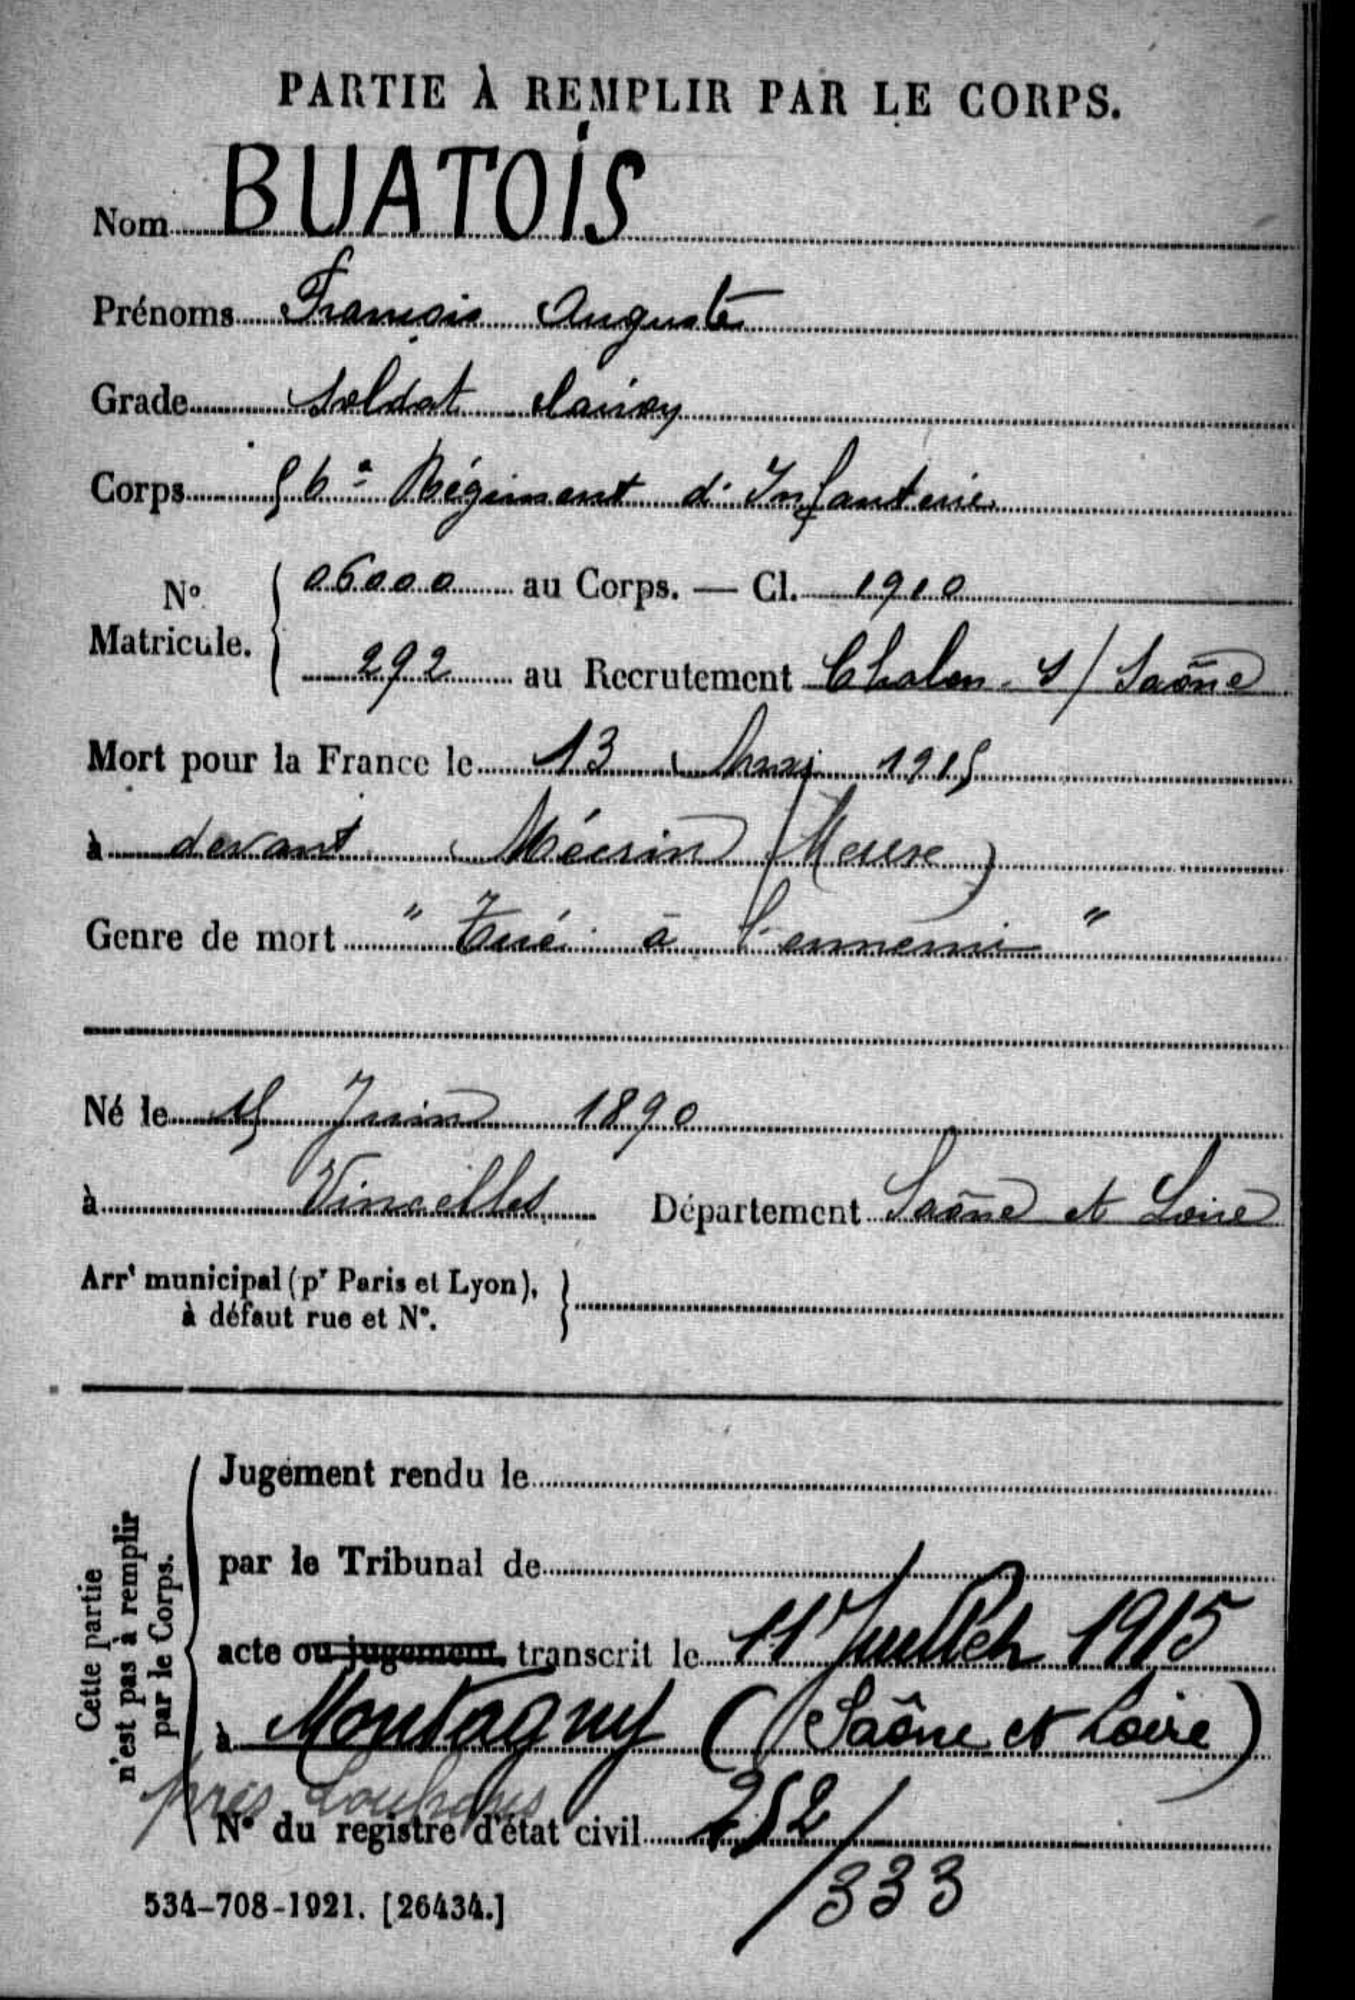 PARTIE À REMPLIR PAR LE CORPS.
Nom BUATOIS
Prénoms François Auguste
Grade Soldat clairon
Corps 56e Régiment d'Infanterie
No Matricule. 06000 au Corps. — Cl. 1910
292 au Recrutement Chalon S/Saône
Mort pour la France le 13 Mai 1915
à devant Mécrin (Meuse)
Genre de mort "Tué à l'ennemi"
Né le 15 Juin 1890
à Vincelles Département Saône et Loire
Arrt municipal (pr Paris et Lyon),
à défaut rue et No.
Cette partie
n'est pas à remplir
par le Corps.
Jugement rendu le
par le Tribunal de
acte ou jugement transcrit le 11 Juillet 1915
à Montagny (Saône et Loire)
près Louhans
No du registre d'état civil 252/333
534-708-1921. [26434.]